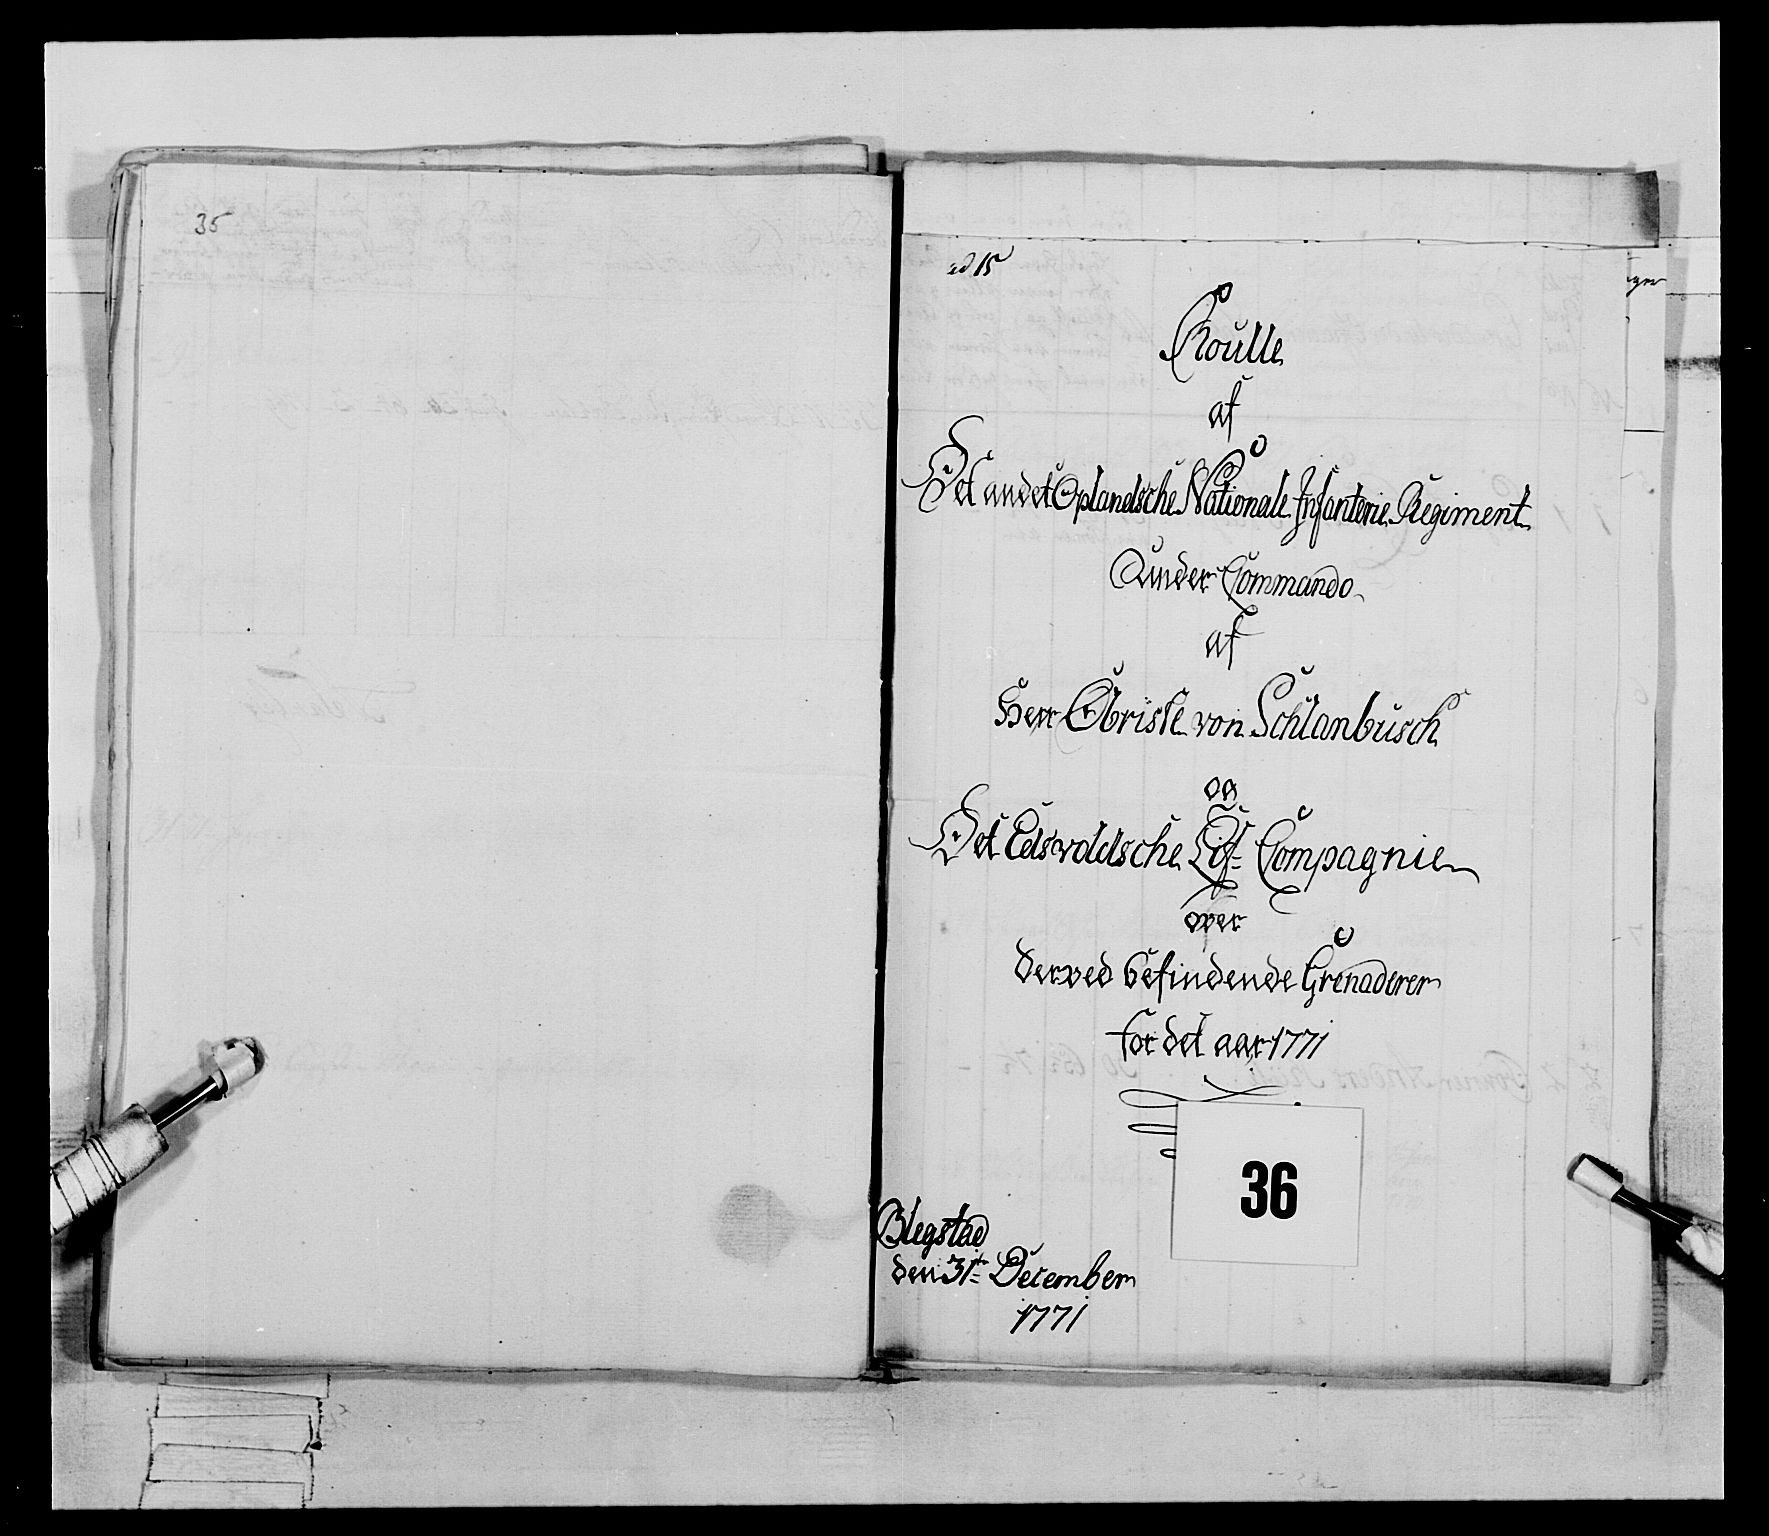 35
15
Roulle
af
Det andet Oplandsche Nationale Infanterie Regiment
Under Commando
af
Herr Obriste von Schlanbusch
og
Det Edsvoldsche Lif= Compagnie
over
derved befindende Grenaderer
for det aar 1771
36
Blegstad
den 31te December
1771